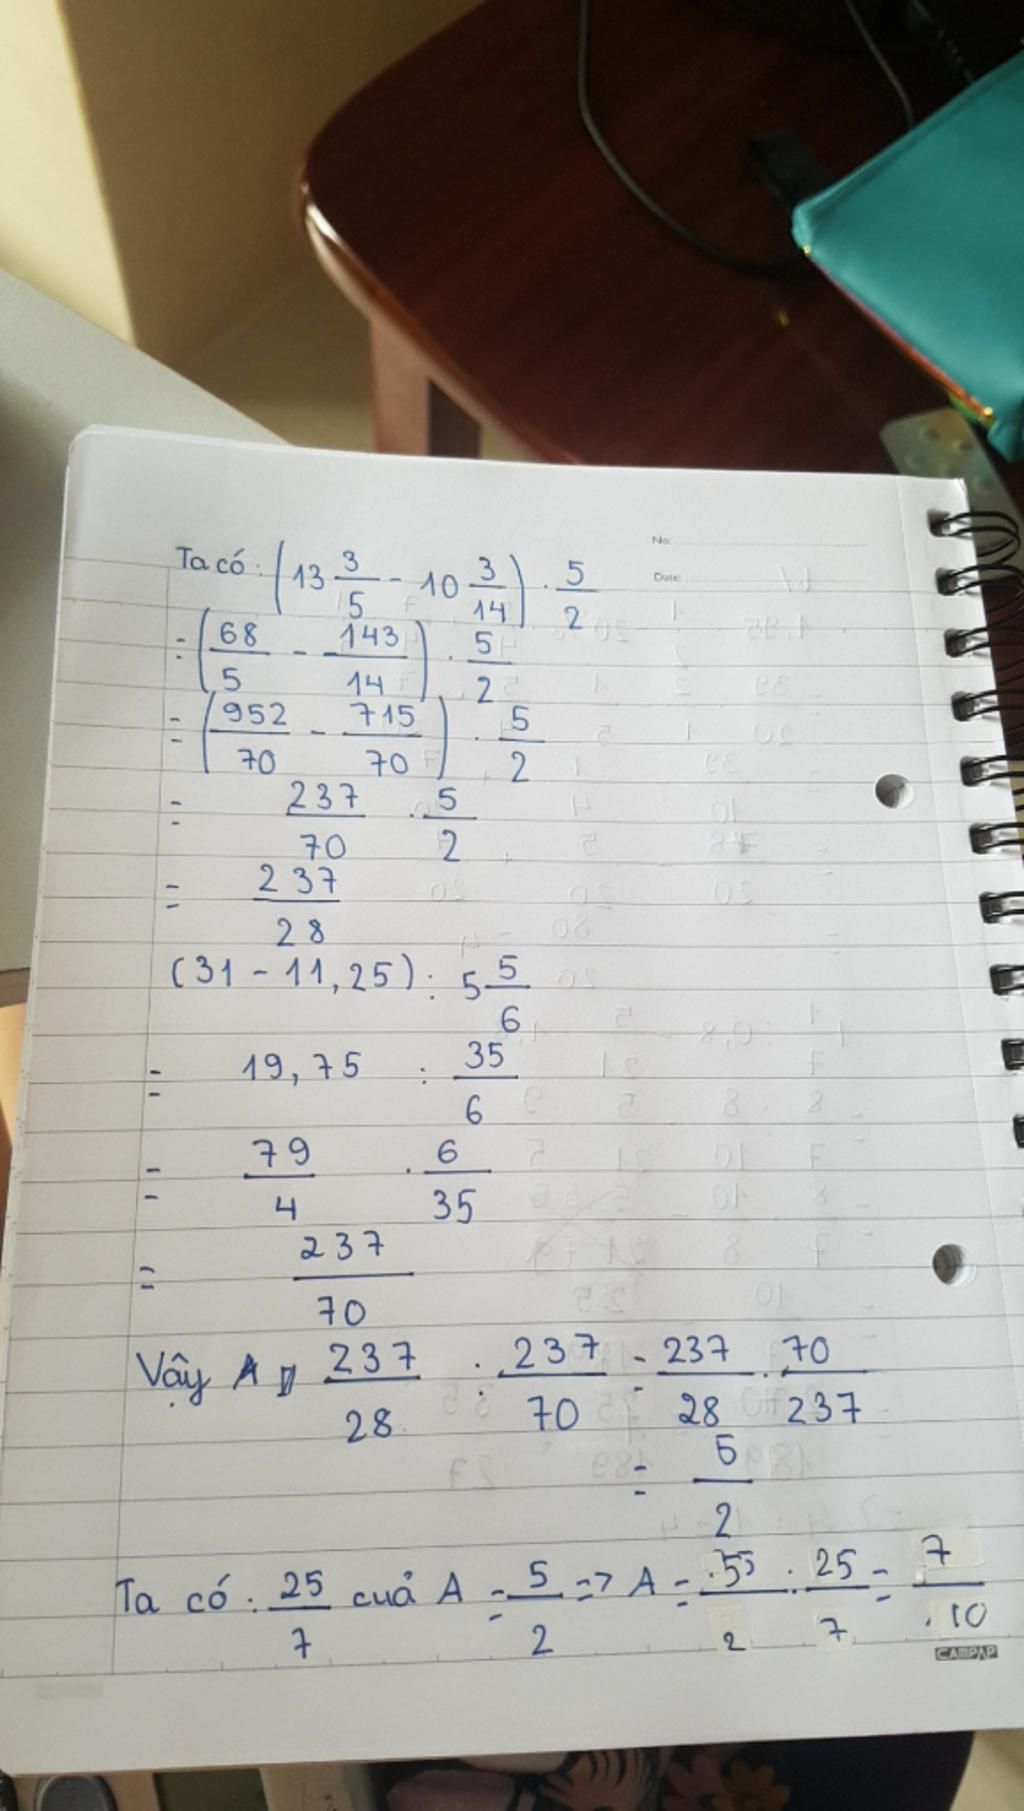 No:
Date:
Ta có: (13 3/5 - 10 3/14) . 5/2
= (68/5 - 143/14) . 5/2
= (952/70 - 715/70) . 5/2
= 237/70 . 5/2
= 237/28
(31 - 11,25) : 5 5/6
= 19,75 : 35/6
= 79/4 . 6/35
= 237/70
Vậy A = 237/28 : 237/70 = 237/28 . 70/237
= 5/2
Ta có: 25/7 cuả A = 5/2 => A = 5/2 : 25/7 = 7/10
CAMPAP